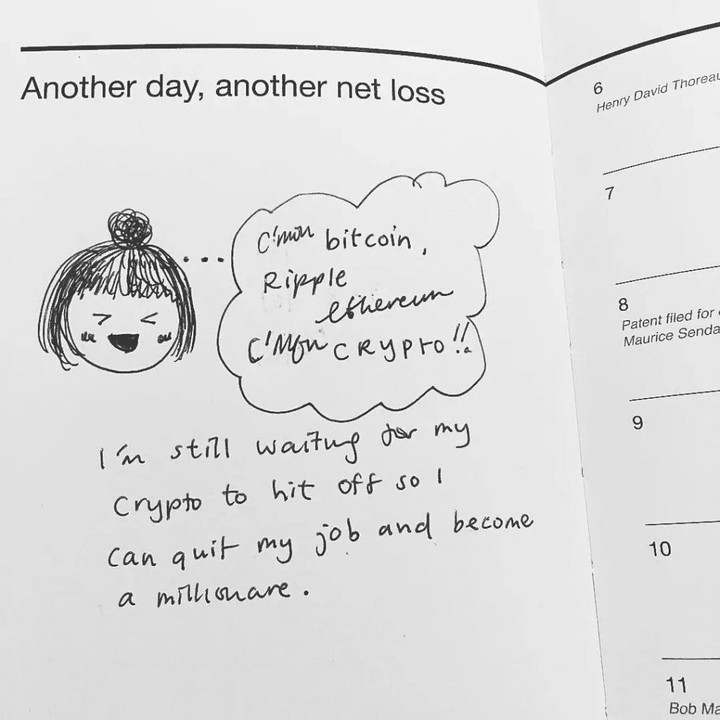 Another day, another net loss
C'mon bitcoin,
Ripple
ethereum
C'Mon CRYPTO!!
I'm still waiting for my
Crypto to hit off so I
can quit my job and become
a millionare.
6
Henry David Thoreau
7
8
Patent filed for
Maurice Senda
9
10
11
Bob Ma